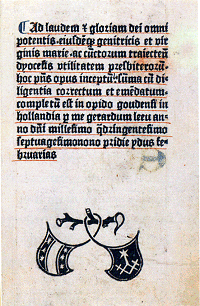 Ad laudem ⁊ gloriam dei omni
potentis eiusdēq̄ꝫ genitricis et vir
ginis marie. ac cūctorum traiecteñ
dyocesis vtilitatem presbiterorū.
hoc pñs opus inceptū. sūma cū di
ligentia correctum et emēdatum.
completū est in opido goudensi in
hollandia p me gerardum leeu an
no dñi millesimo q̄dringentesimo
septuagesimonono pridie ydus fe
bruarias